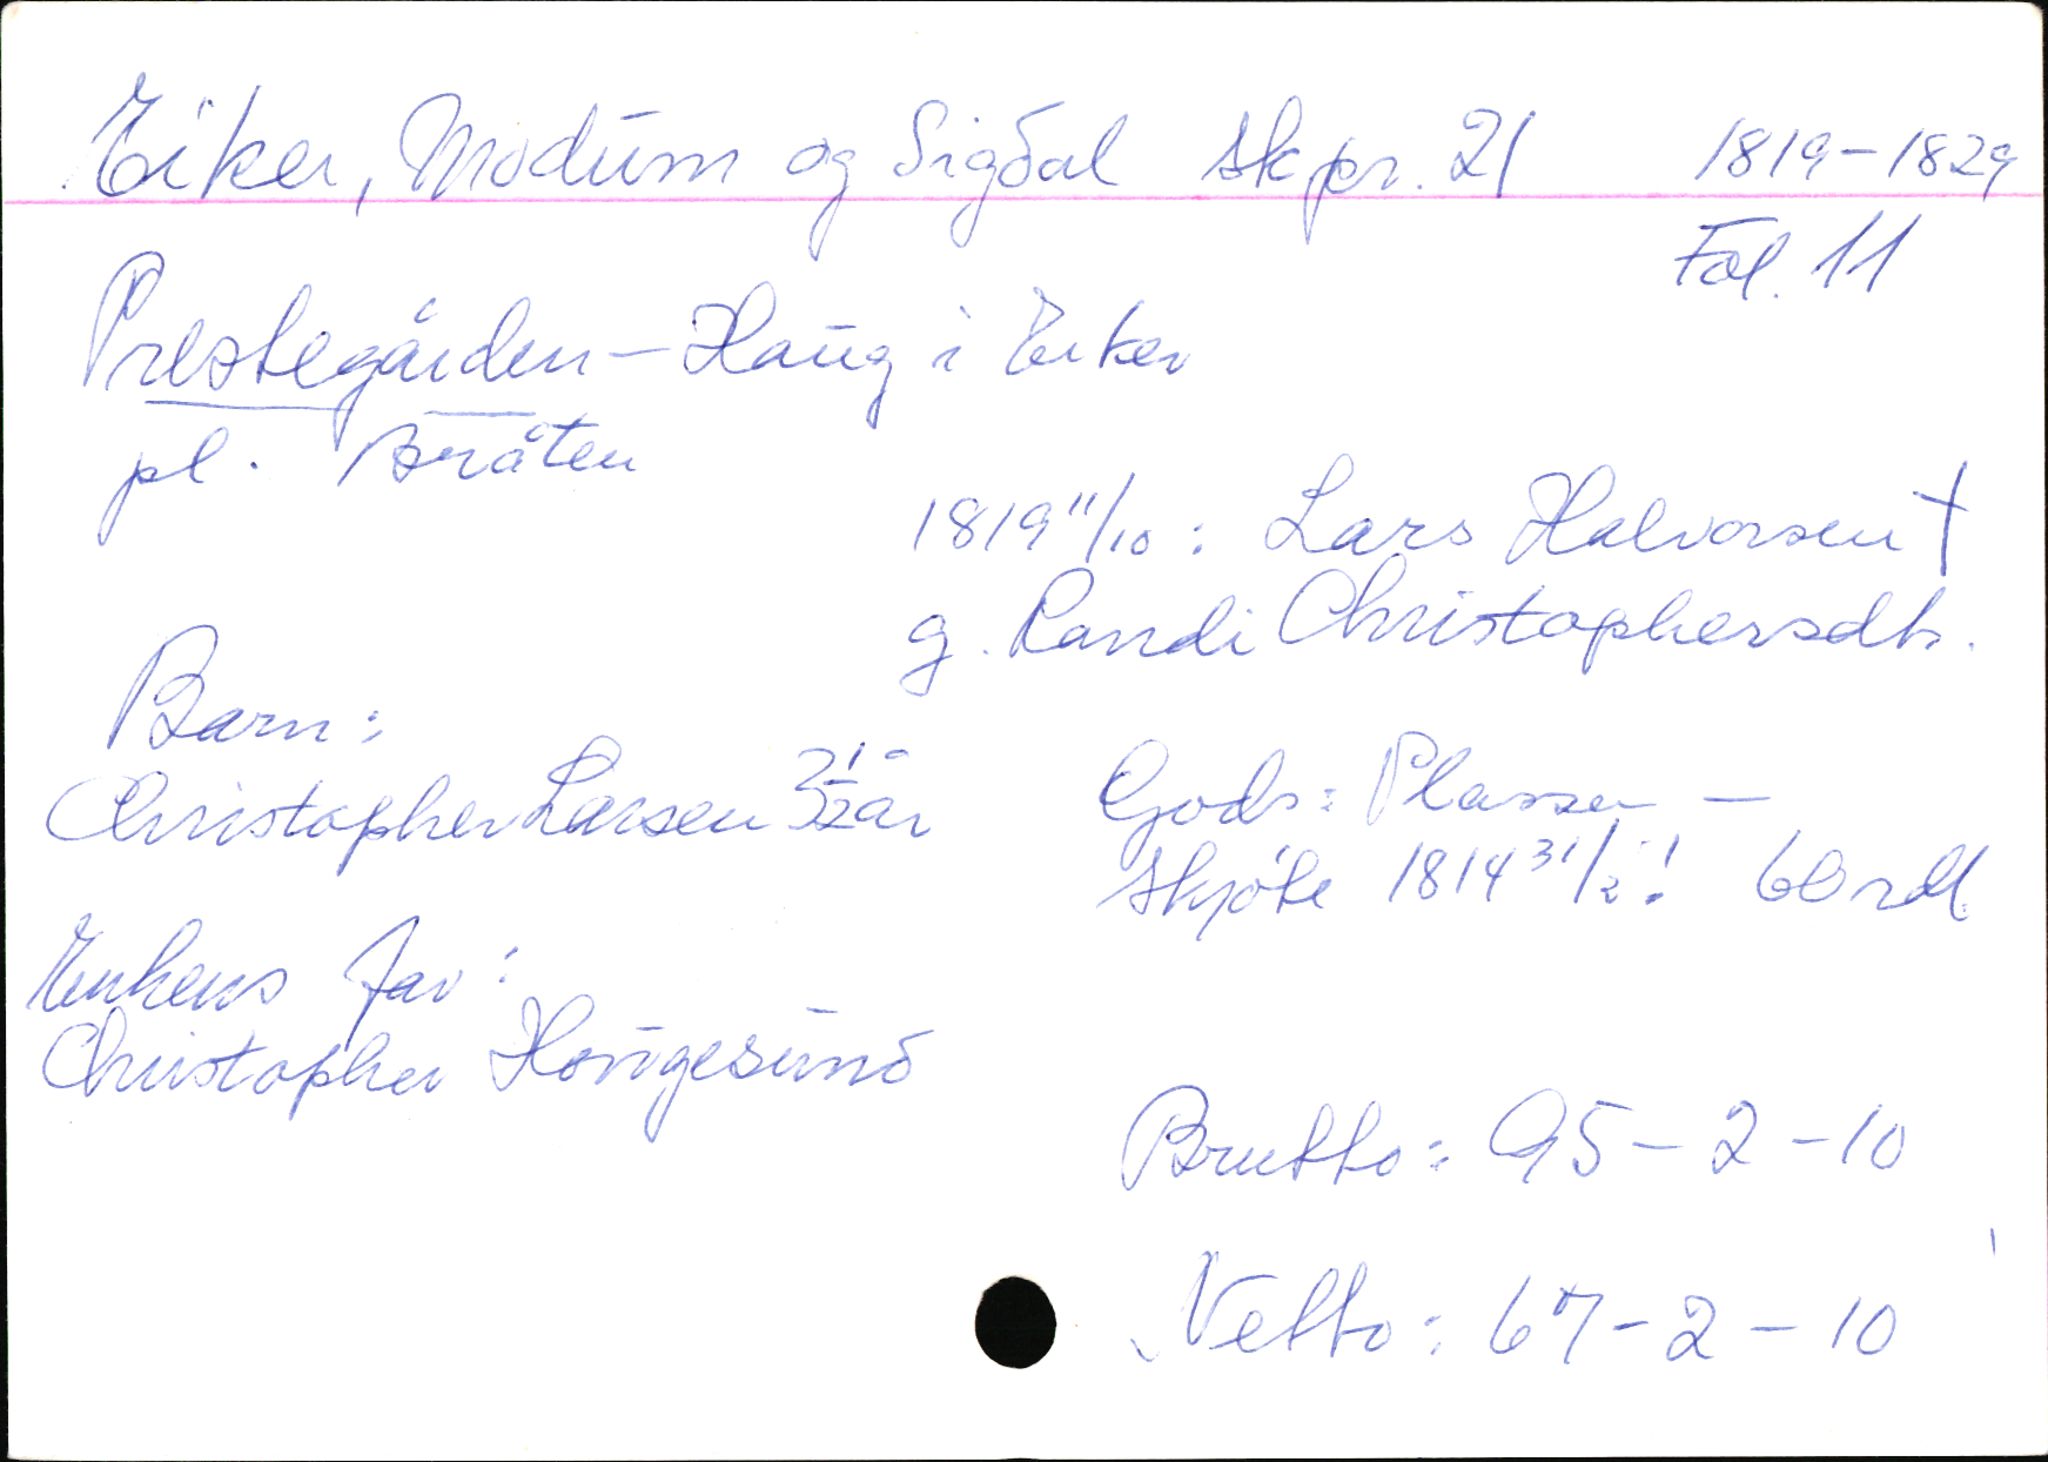 Eiker, Modum og Sigdal skpr. 21 1819-1829
Fol. 11
Prestegården - Haug i Eiker
pl. Bråten
1819 11/10: Lars Halvorsen †
g. Randi Christophersdtr.
Barn:
Christopher Larsen 3 1/2 år
Gods: Plassen -
skjöte 1814 31/2 ! 60 rdl
Enkens far:
Christopher Hougesund
Brutto: 95 - 2 - 10
Netto: 67 - 2 - 10